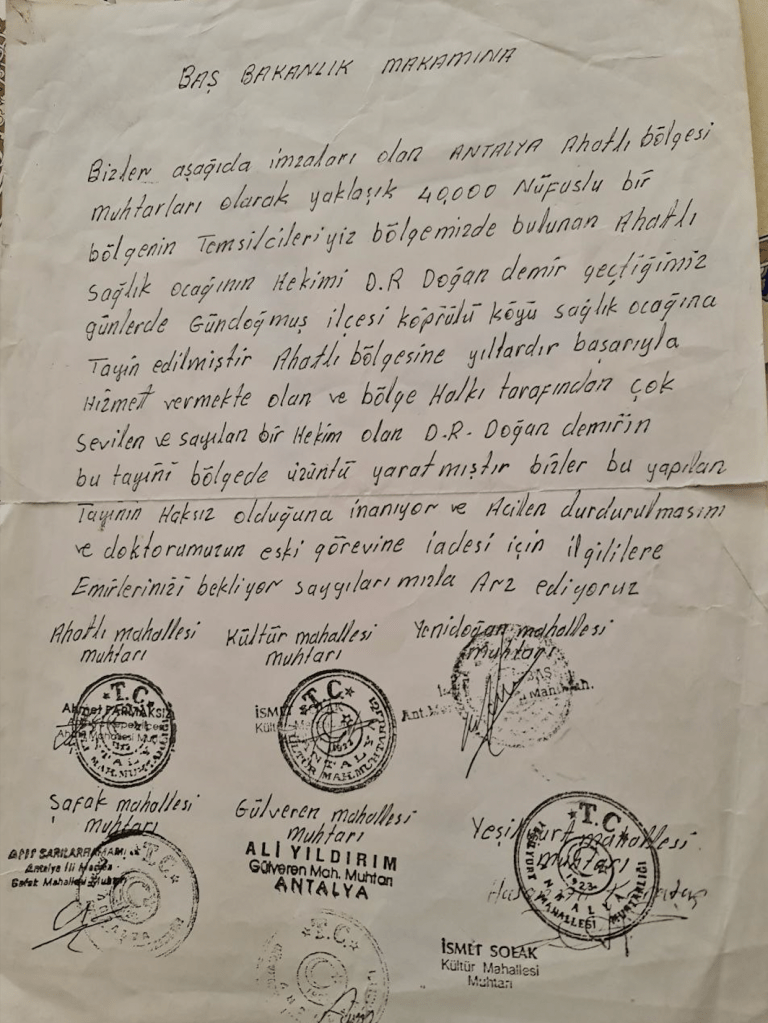 BAŞ BAKANLIK MAKAMINA
Bizler aşağıda imzaları olan ANTALYA Ahatlı bölgesi
muhtarları olarak yaklaşık 40,000 Nüfuslu bir
bölgenin Temsilcileriyiz bölgemizde bulunan Ahatlı
sağlık ocağının Hekimi D.R Doğan demir geçtiğimiz
günlerde Gündoğmuş ilçesi köprülü köyü sağlık ocağına
Tayin edilmiştir Ahatlı bölgesine yıllardır başarıyla
Hizmet vermekte olan ve bölge Halkı tarafından çok
Sevilen ve sayılan bir Hekim olan D.R. Doğan demir'in
bu tayini bölgede üzüntü yaratmıştır bizler bu yapılan
Tayinin Haksız olduğuna inanıyor ve Acilen durdurulmasını
ve doktorumuzun eski görevine iadesi için ilgililere
Emirlerinizi bekliyor saygılarımızla Arz ediyoruz
Ahatlı mahallesi Kültür mahallesi Yenidoğan mahallesi
muhtarı muhtarı muhtarı
T.C. T.C.
Ahmet PARMAKSIZ İSMET
1923 1923
ANTALYA
KÜLTÜR MAH. MUHTARLIĞI
Şafak mahallesi Gülveren mahallesi Yeşilyurt mahallesi
muhtarı muhtarı muhtarı
T.C. ALİ YILDIRIM T.C.
Antalya İli Merkez Gülveren Mah. Muhtarı
Şafak Mahallesi Muhtarı ANTALYA
1923
YEŞİLYURT MAHALLESİ MUHTARLIĞI
ANTALYA
T.C.
İSMET SOLAK
Kültür Mahallesi
Muhtarı